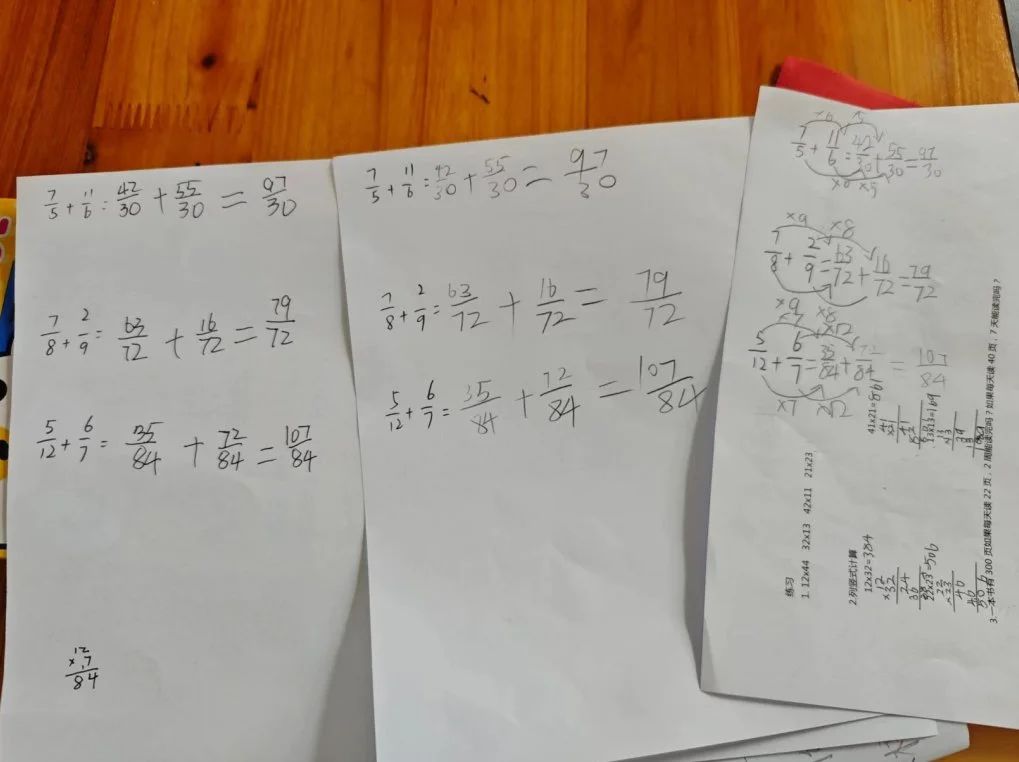 7/5 + 11/6 = 42/30 + 55/30 = 97/30
7/8 + 2/9 = 63/72 + 16/72 = 79/72
5/12 + 6/7 = 35/84 + 72/84 = 107/84
12
×7
84
7/5 + 11/6 = 42/30 + 55/30 = 97/30
7/8 + 2/9 = 63/72 + 16/72 = 79/72
5/12 + 6/7 = 35/84 + 72/84 = 107/84
×6 ×5
7/5 + 11/6 = 42/30 + 55/30 = 97/30
×6 ×5
×9 ×8
7/8 + 2/9 = 63/72 + 16/72 = 79/72
×9 ×8
×7 ×12
5/12 + 6/7 = 35/84 + 72/84 = 107/84
×7 ×12
练习
1. 12x44 32x13 42x11 21x23
2.列竖式计算
12x32=384
12
×32
24
36
41x21=861
41
×21
41
82
22x23=506
22
×23
46
506
13x13=169
13
39
3.一本书有 300 页如果每天读 22 页，2 周能读完吗？如果每天读 40 页，7 天能读完吗？